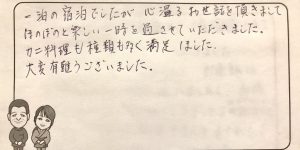 一泊の宿泊でしたが 心温るお世話を頂きまして
ほのぼのと楽しい一時を過させていただきました。
カニ料理も種類も多く満足しました。
大変有難うございました。